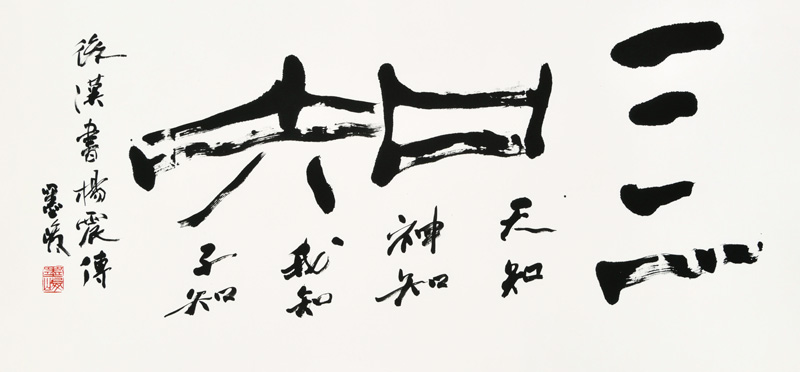 亖知
天知
神知
我知
子知
後漢書楊震傳